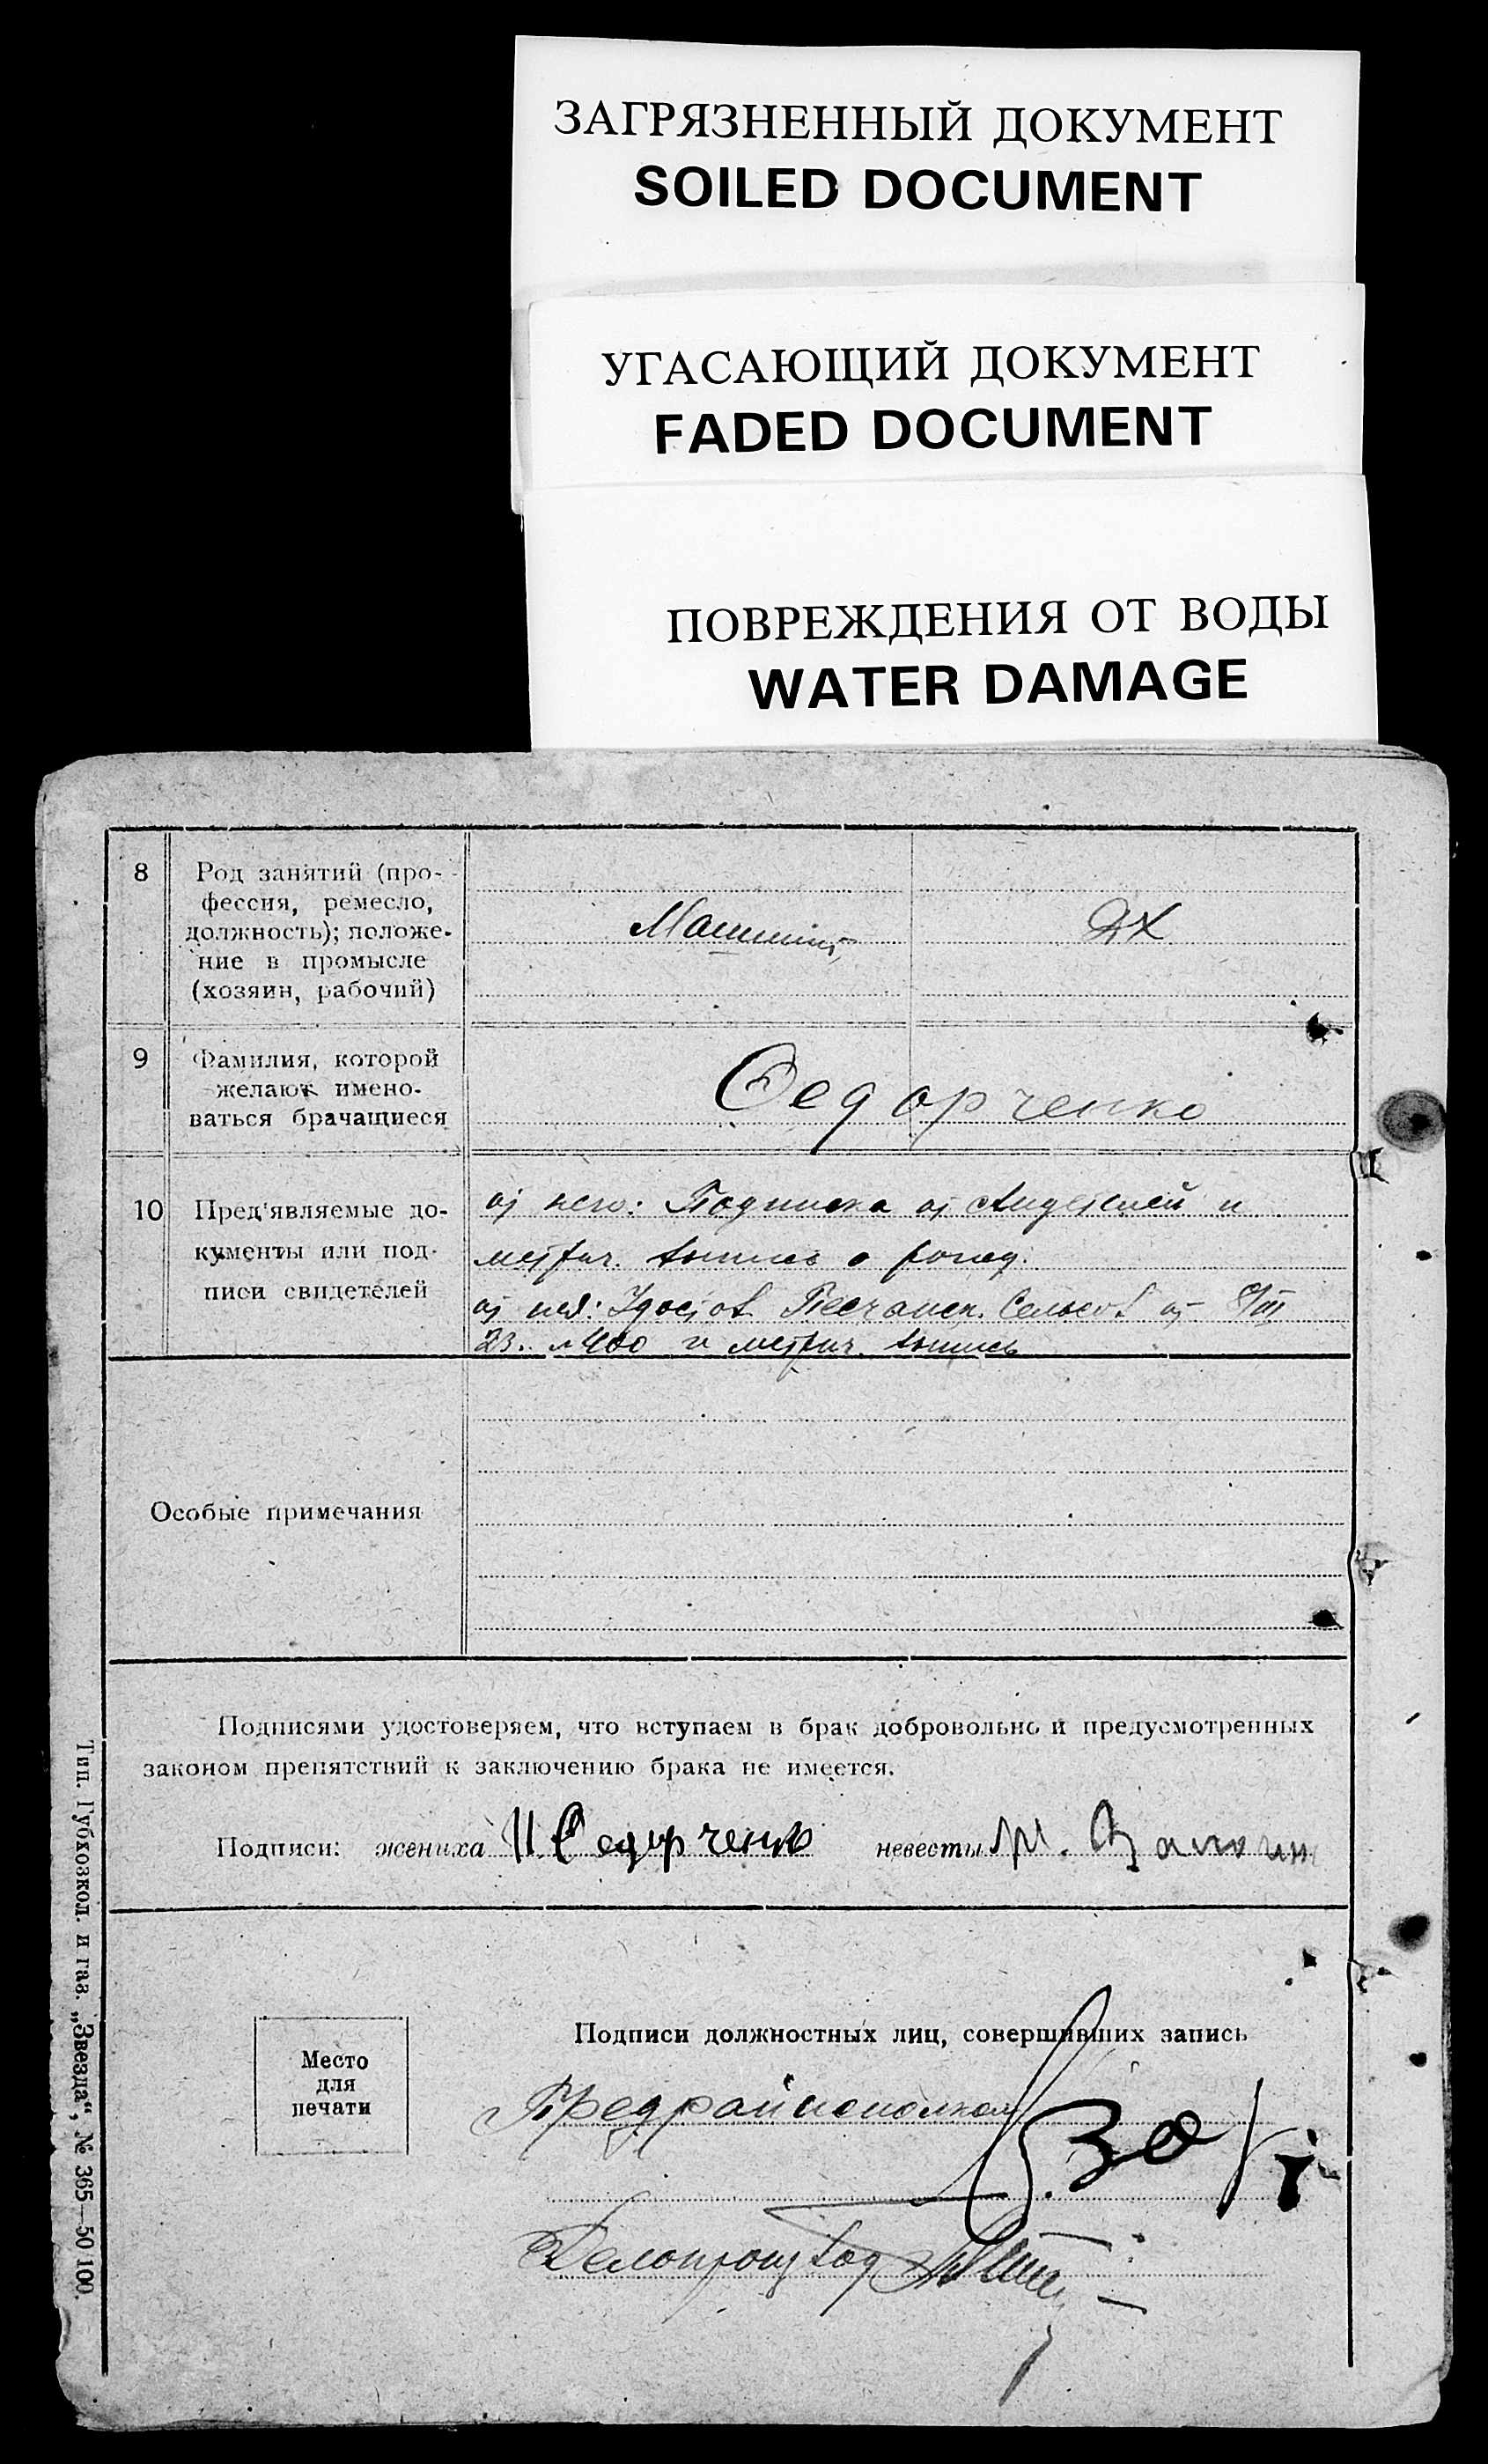 ЗАГРЯЗНЕННЫЙ ДОКУМЕНТ
SOILED DOCUMENT
УГАСАЮЩИЙ ДОКУМЕНТ
FADED DOCUMENT
ПОВРЕЖДЕНИЯ ОТ ВОДЫ
WATER DAMAGE
8 Род занятий (про-
фессия, ремесло,
должность); положе-
ние в промысле
(хозяин, рабочий)
Машинист ДХ
9 Фамилия, которой
желают имено-
ваться брачащиеся
Федорченко
10 Пред'являемые до-
кументы или под-
писи свидетелей
от него: Подписка от и
метрич. выпись о рожд.
от нея: Удостов. Песчанск. Сельсов от 8/III
23. № 400 и метрич. выпись
Особые примечания
Подписями удостоверяем, что вступаем в брак добровольно и предусмотренных
законом препятствий к заключению брака не имеется.
Подписи: жениха И Федорченко невесты М.
Подписи должностных лиц, совершивших запись
Место
для
печати
Предрайисполком
30/I
Делопроизвод
Тип. Губхозкол. и газ. „Звезда“, № 365—50 100.